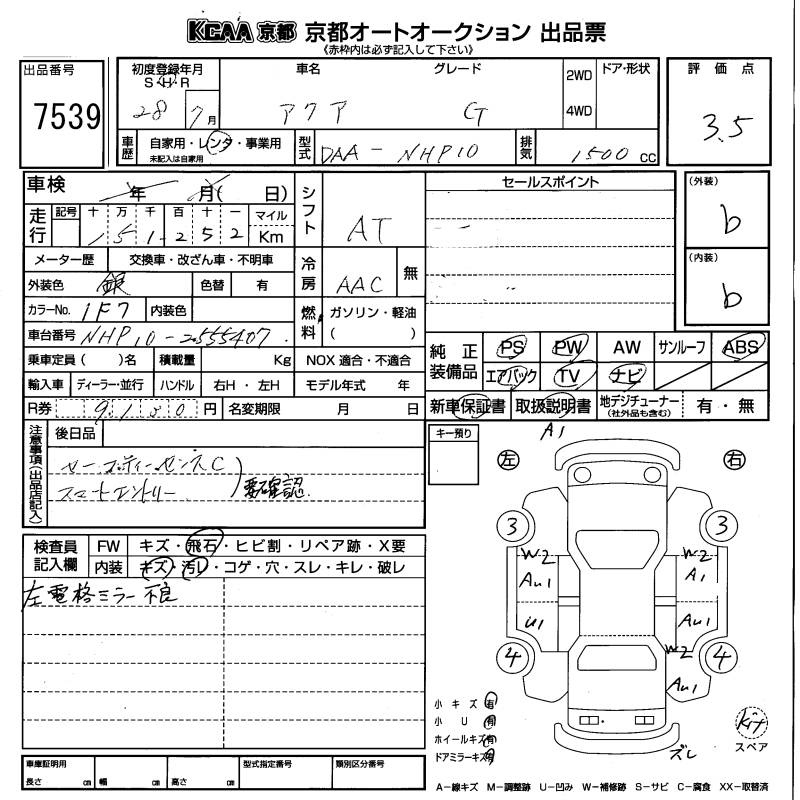 KCAA 京都 京都オートオークション 出品票
《赤枠内は必ず記入して下さい》
出品番号
7539
初度登録年月
S・H・R
28 7月
車名
アクア
グレード
G
2WD
4WD
ドア・形状
評価点
3.5
車歴
自家用・レンタ・事業用
未記入は自家用
型式
DAA-NHP10
排気
1500 CC
車検 年 月( 日)
走行
記号 十 万 千 百 十 一 マイル
1 5 1 2 5 2 Km
メーター歴 交換車・改ざん車・不明車
外装色 銀 色替 有
カラーNo. 1F7 内装色
車台番号 NHP10-2555407
乗車定員( )名 積載量 Kg
輸入車 ディーラー・並行 ハンドル 右H・左H
R券 9,1 円 名変期限 月 日
シフト AT
冷房 AAC 無
燃料 ガソリン・軽油
( )
NOX 適合・不適合
モデル年式 年
セールスポイント
(外装)
b
(内装)
b
純正装備品
PS PW AW サンルーフ ABS
エアバック TV ナビ
新車保証書 取扱説明書 地デジチューナー 有・無
(社外品も含む)
注意事項(出品店記入)
後日品
セーフティーセンスC
スマートエントリー
要確認
キー預り
A1
左 右
3 3
W2 W2
Au1 A1
U1 Au1
4 W2 4
Au1
ズレ
検査員記入欄
FW キズ・飛石・ヒビ割・リペア跡・X要
内装 キズ・汚レ・コゲ・穴・スレ・キレ・破レ
左電格ミラー不良
小キズ 有
小U 有
ホイールキズ 有
ドアミラーキズ 有
Kit
スペア
車庫証明用
長さ cm 幅 cm 高さ cm
型式指定番号
類別区分番号
A−線キズ M−調整跡 U−凹み W−補修跡 S−サビ C−腐食 XX−取替済